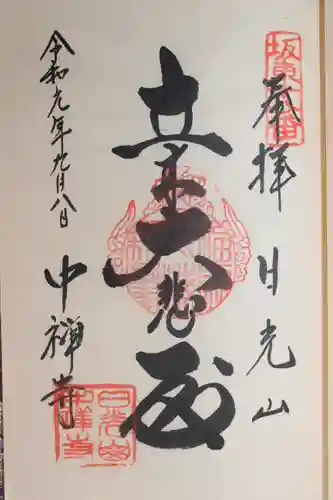 坂東十八番
奉拝 日光山
立木大悲殿
令和元年九月八日
中禅寺
日光山
中禅寺